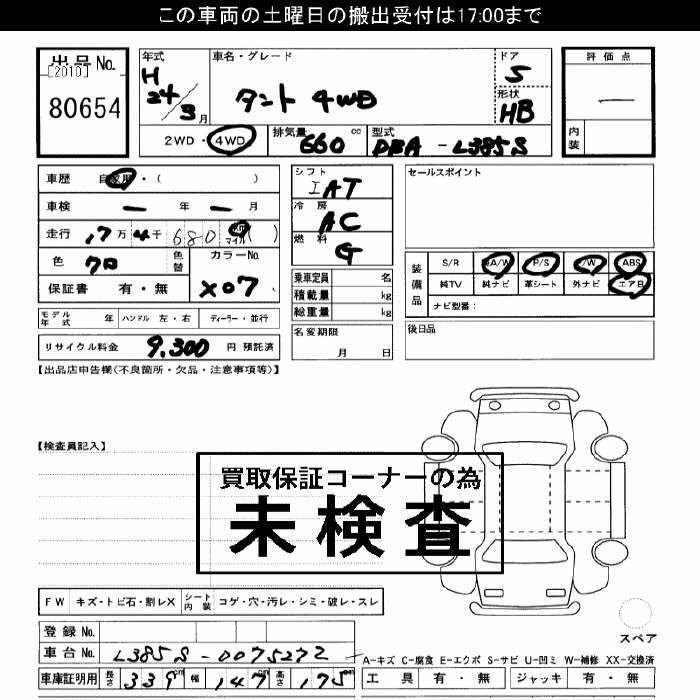 この車両の土曜日の搬出受付は17:00まで
出品No.
[2010]
80654
年式
H
24/3月
車名・グレード
タント 4WD
ドア
5
形状
HB
評価点
—
内装
2WD・4WD
排気量
660 cc
型式
DBA-L385S
車歴 自家用・( )
車検 ー 年 ー 月
走行 17万4千680 マイル
色 クロ 色替
カラーNo.
X07
保証書 有・無
モデル年式 年 ハンドル 左・右 ディーラー・並行
リサイクル料金 9,300 円 預託済
シフト
IAT
冷房
AC
燃料
G
乗車定員 名
積載量 kg
総重量 kg
名変期限
月 日
セールスポイント
装備品
S/R A/W P/S P/W ABS
純TV 純ナビ 革シート 外ナビ エアB
ナビ型番:
後日品
【出品店申告欄(不良箇所・欠品・注意事項等)】
【検査員記入】
買取保証コーナーの為
未検査
FW キズ・トビ石・割レX シート内装 コゲ・穴・汚レ・シミ・破レ・スレ
登録No.
車台No. L385S-0075272
車庫証明用 長さ 339cm 幅 147cm 高さ 175cm
スペア
A-キズ C-腐食 E-エクボ S-サビ U-凹ミ W-補修 XX-交換済
工具 有・無 ジャッキ 有・無